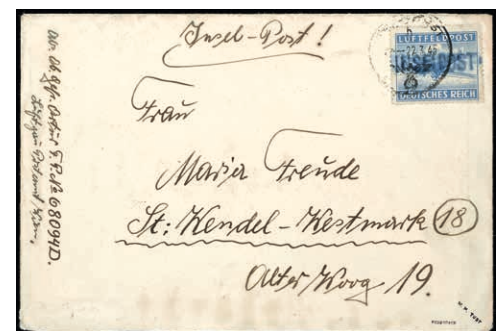 Insel-Post!
LUFTFELDPOST
INSELPOST
DEUTSCHES REICH
Frau
Maria Freude
St. Wendel-Westmark (18)
Alter Woog 19.
Abs. Ob. Gefr. F.P.Nr 68094D.
Luftgau Postamt Wien.